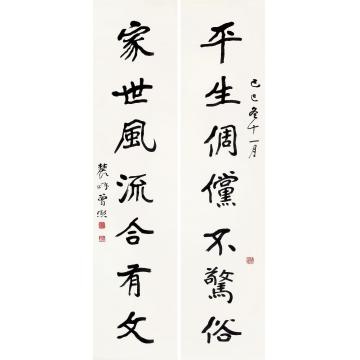 平生倜儻不驚俗
己巳冬十一月
家世風流合有文
農髯曾熙